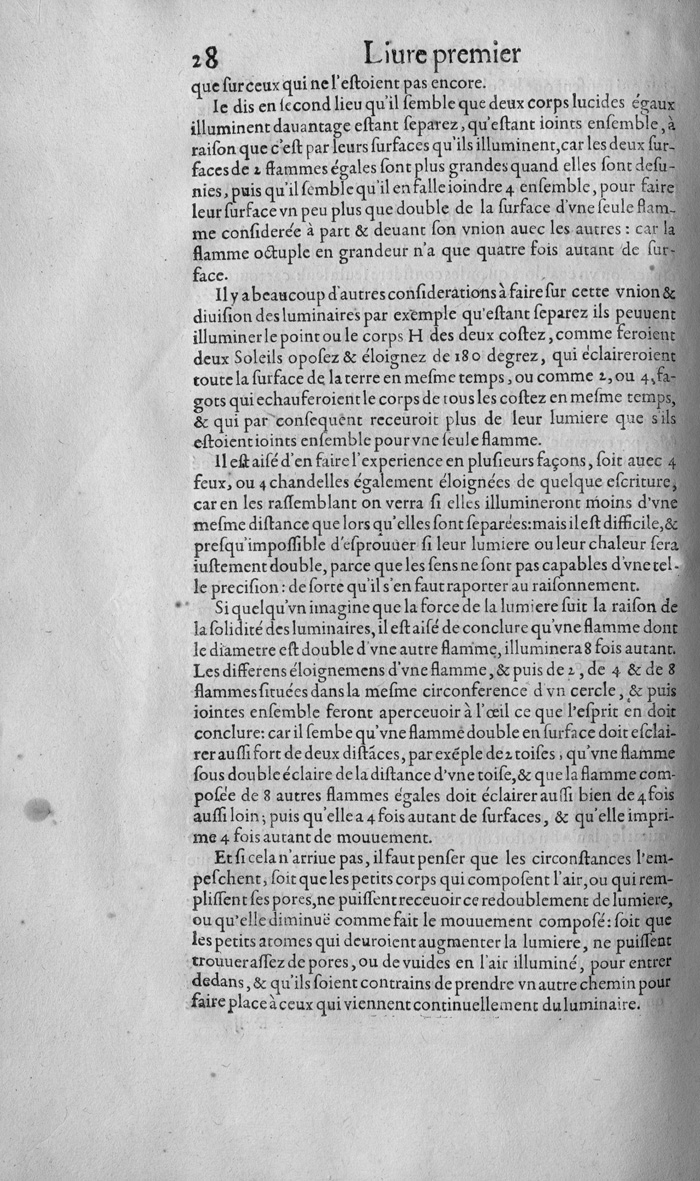 28 Liure premier
que ſur ceux qui ne l'eſtoient pas encore.
Ie dis en ſecond lieu qu'il ſemble que deux corps lucides égaux
illuminent dauantage eſtant ſeparez, qu'eſtant ioints enſemble, à
raiſon que c'eſt par leurs ſurfaces qu'ils illuminent, car les deux ſur-
faces de 2 flammes égales ſont plus grandes quand elles ſont deſu-
nies, puis qu'il ſemble qu'il en falle ioindre 4 enſemble, pour faire
leur ſurface vn peu plus que double de la ſurface d'vne ſeule flam-
me conſiderée à part & deuant ſon vnion auec les autres : car la
flamme octuple en grandeur n'a que quatre fois autant de ſur-
face.
Il y a beaucoup d'autres conſiderations à faire ſur cette vnion &
diuiſion des luminaires par exemple qu'eſtant ſeparez ils peuuent
illuminer le point ou le corps H des deux coſtez, comme feroient
deux Soleils opoſez & éloignez de 180 degrez, qui éclaireroient
toute la ſurface de la terre en meſme temps, ou comme 2, ou 4, fa-
gots qui echauferoient le corps de tous les coſtez en meſme temps,
& qui par conſequent receuroit plus de leur lumiere que s'ils
eſtoient ioints enſemble pour vne ſeule flamme.
Il eſt aiſé d'en faire l'experience en pluſieurs façons, ſoit auec 4
feux, ou 4 chandelles également éloignées de quelque eſcriture,
car en les raſſemblant on verra ſi elles illumineront moins d'vne
meſme diſtance que lors qu'elles ſont ſeparées: mais il eſt difficile, &
preſqu'impoſſible d'eſprouuer ſi leur lumiere ou leur chaleur ſera
iuſtement double, parce que les ſens ne ſont pas capables d'vne tel-
le preciſion : de ſorte qu'il s'en faut raporter au raiſonnement.
Si quelqu'vn imagine que la force de la lumiere ſuit la raiſon de
la ſolidité des luminaires, il eſt aiſé de conclure qu'vne flamme dont
le diametre eſt double d'vne autre flamme, illuminera 8 fois autant.
Les differens éloignemens d'vne flamme, & puis de 2, de 4 & de 8
flammes ſituées dans la meſme circonference d'vn cercle, & puis
iointes enſemble feront aperceuoir à l'œil ce que l'eſprit en doit
conclure: car il ſembe qu'vne flamme double en ſurface doit eſclai-
rer auſſi fort de deux diſtãces, par exéple de 2 toiſes, qu'vne flamme
ſous double éclaire de la diſtance d'vne toiſe, & que la flamme com-
poſée de 8 autres flammes égales doit éclairer auſſi bien de 4 fois
auſſi loin; puis qu'elle a 4 fois autant de ſurfaces, & qu'elle impri-
me 4 fois autant de mouuement.
Et ſi cela n'arriue pas, il faut penſer que les circonſtances l'em-
peſchent, ſoit que les petits corps qui compoſent l'air, ou qui rem-
pliſſent ſes pores, ne puiſſent receuoir ce redoublement de lumiere,
ou qu'elle diminuë comme fait le mouuement compoſé: ſoit que
les petits atomes qui deuroient augmenter la lumiere, ne puiſſent
trouuer aſſez de pores, ou de vuides en l'air illuminé, pour entrer
dedans, & qu'ils ſoient contrains de prendre vn autre chemin pour
faire place à ceux qui viennent continuellement du luminaire.